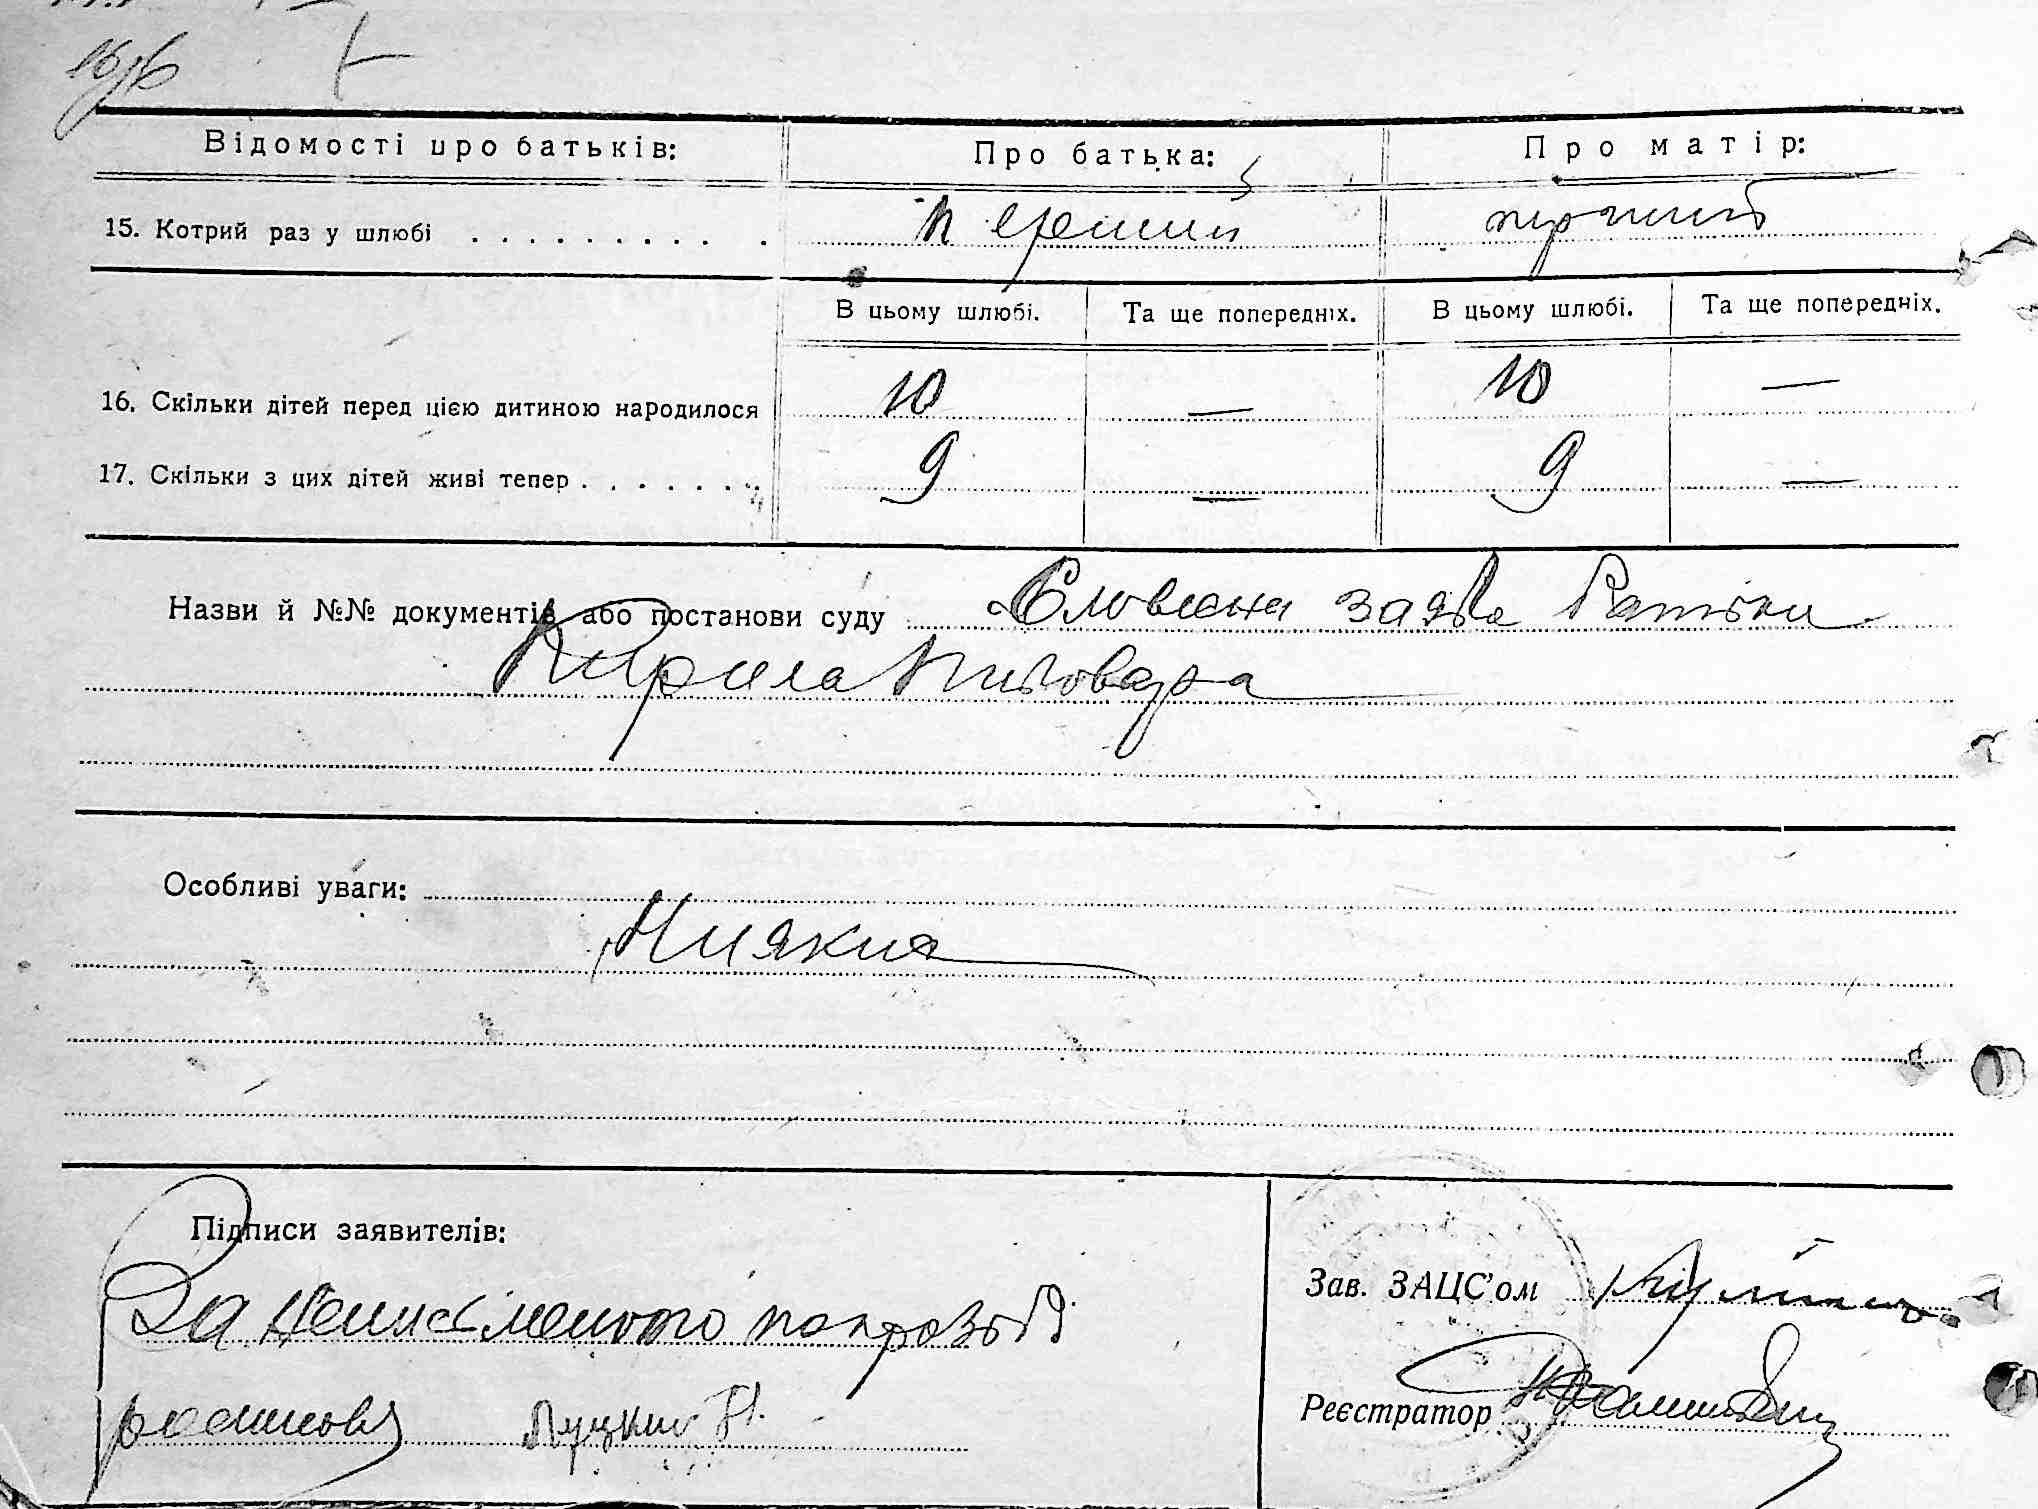 Відомості про батьків: Про батька: Про матір:
15. Котрий раз у шлюбі . . . . . . . . . . перший перший
В цьому шлюбі. Та ще попередніх. В цьому шлюбі. Та ще попередніх.
16. Скільки дітей перед цією дитиною народилося 10 — 10 —
17. Скільки з цих дітей живі тепер . . . . . . . 9 — 9 —
Назви й №№ документів або постанови суду Словесна заява батька
Кирила Пивовара
Особливі уваги:
Ніяких
Підписи заявителів:
За неписьменого по
Луцкий Н.
Зав. ЗАЦС'ом
Реєстратор